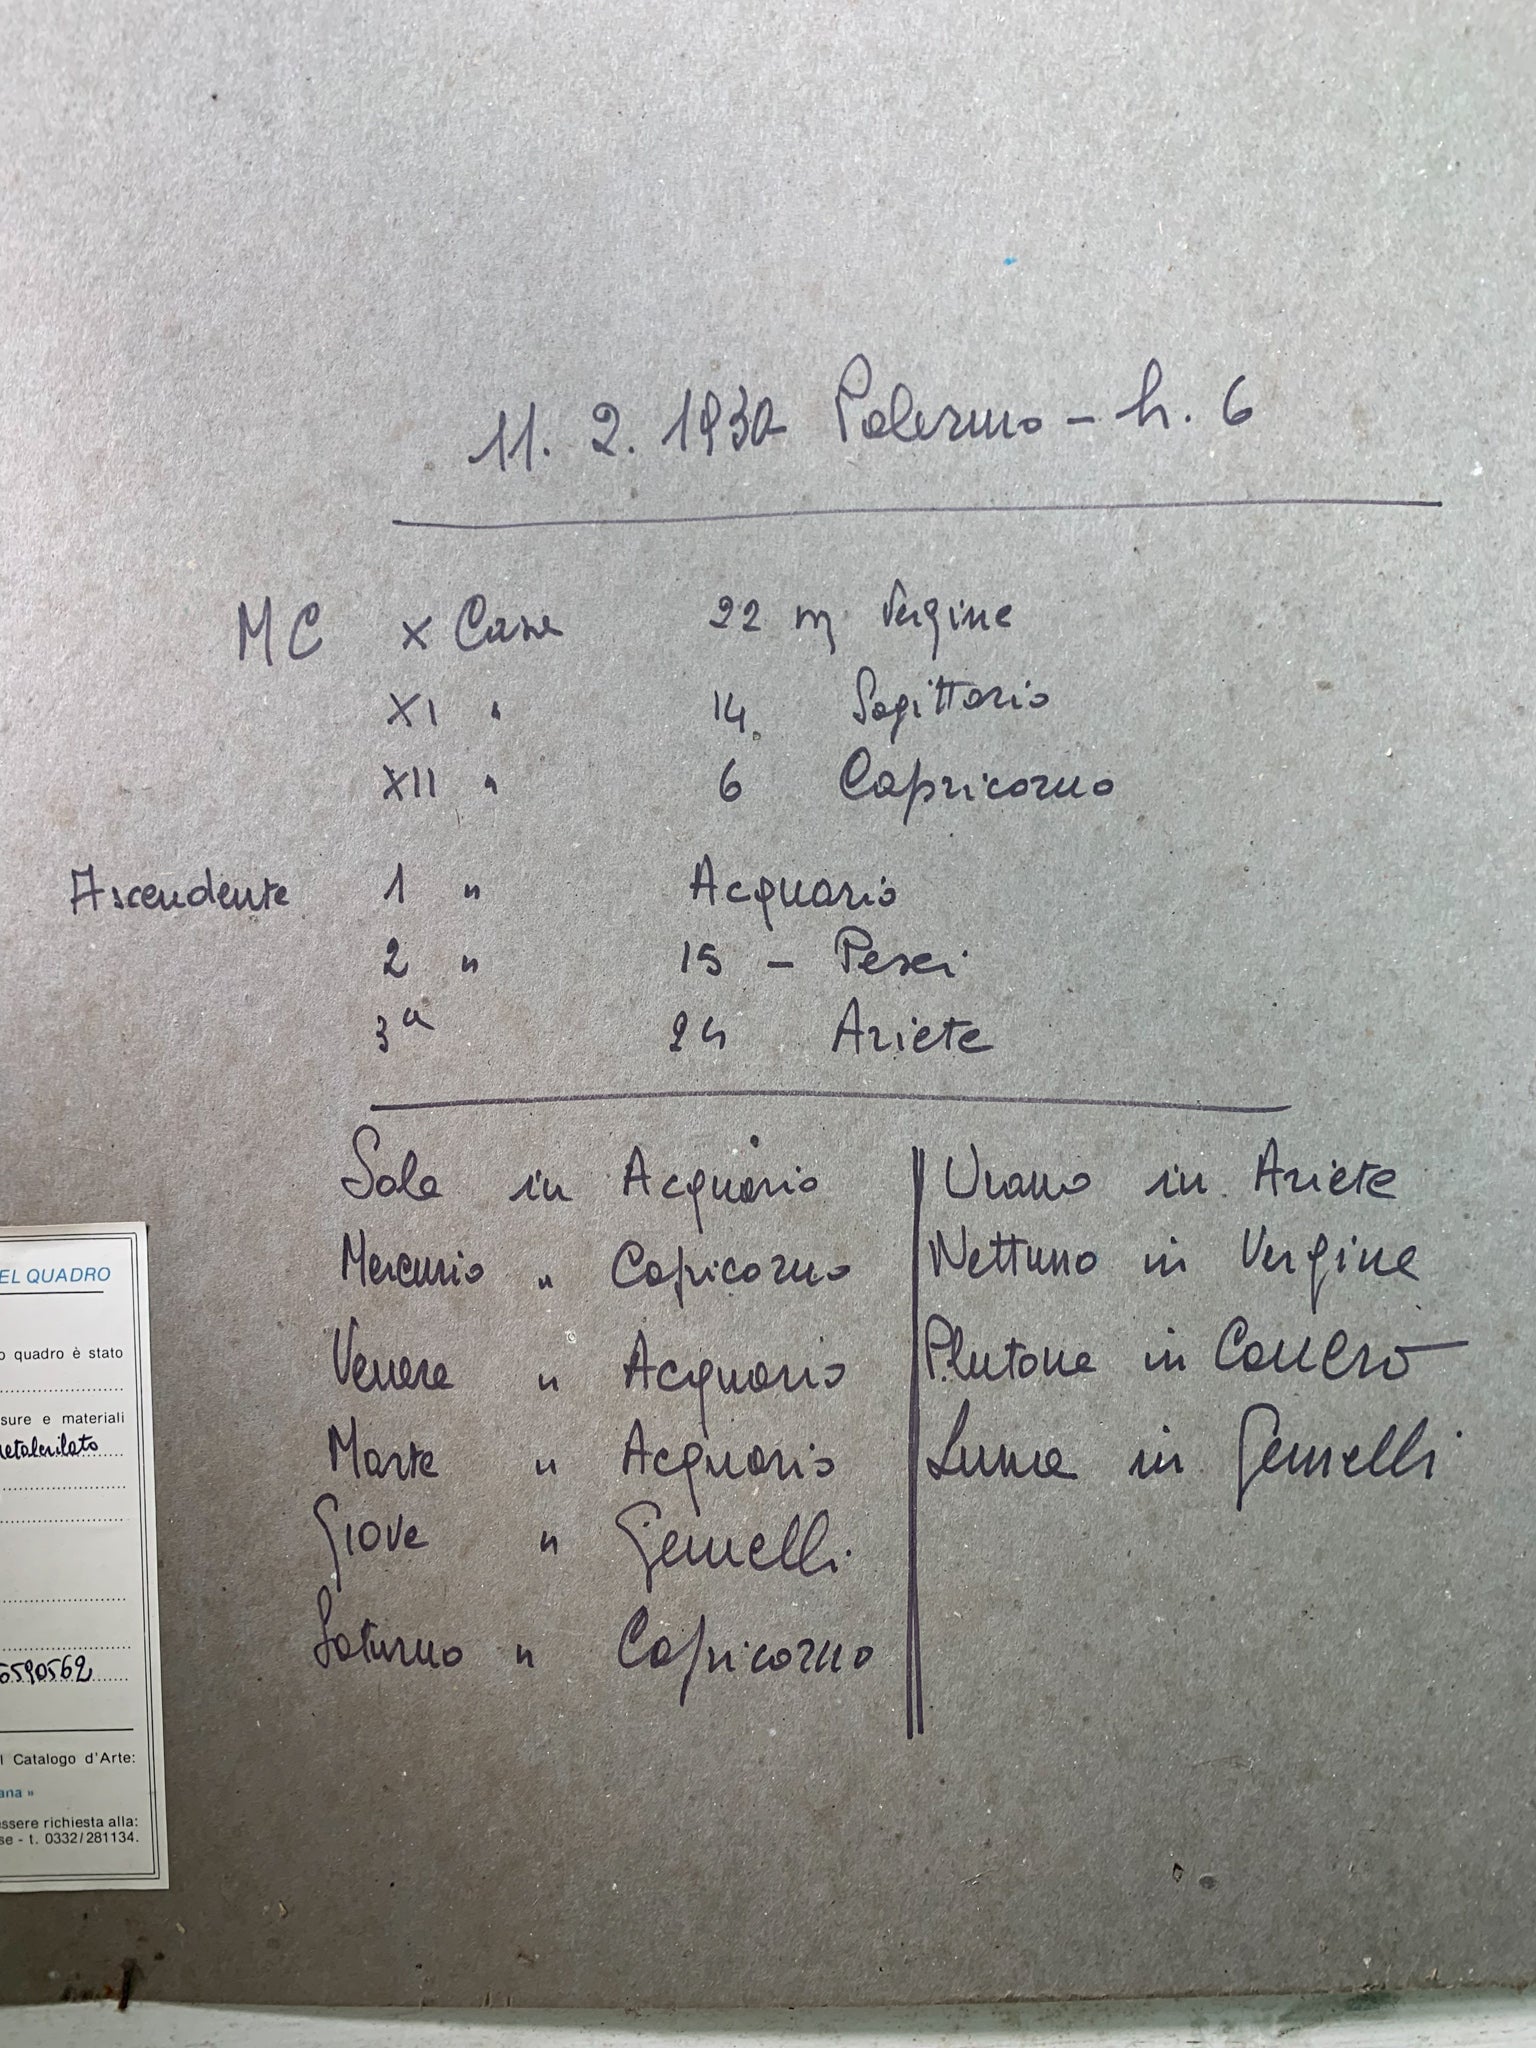 11. 2. 1930 Palermo - h. 6
MC X Casa 22 ♍ Vergine
XI " 14 Sagittario
XII " 6 Capricorno
Ascendente 1 " Acquario
2 " 15 - Pesci
3ª 24 Ariete
Sole in Acquario
Mercurio " Capricorno
Venere " Acquario
Marte " Acquario
Giove " Gemelli
Saturno " Capricorno
Urano in Ariete
Nettuno in Vergine
Plutone in Cancro
Luna in Gemelli
EL QUADRO
o quadro è stato
sure e materiali
etacrilato
6590562
l Catalogo d'Arte:
ana »
ssere richiesta alla:
se - t. 0332/281134.